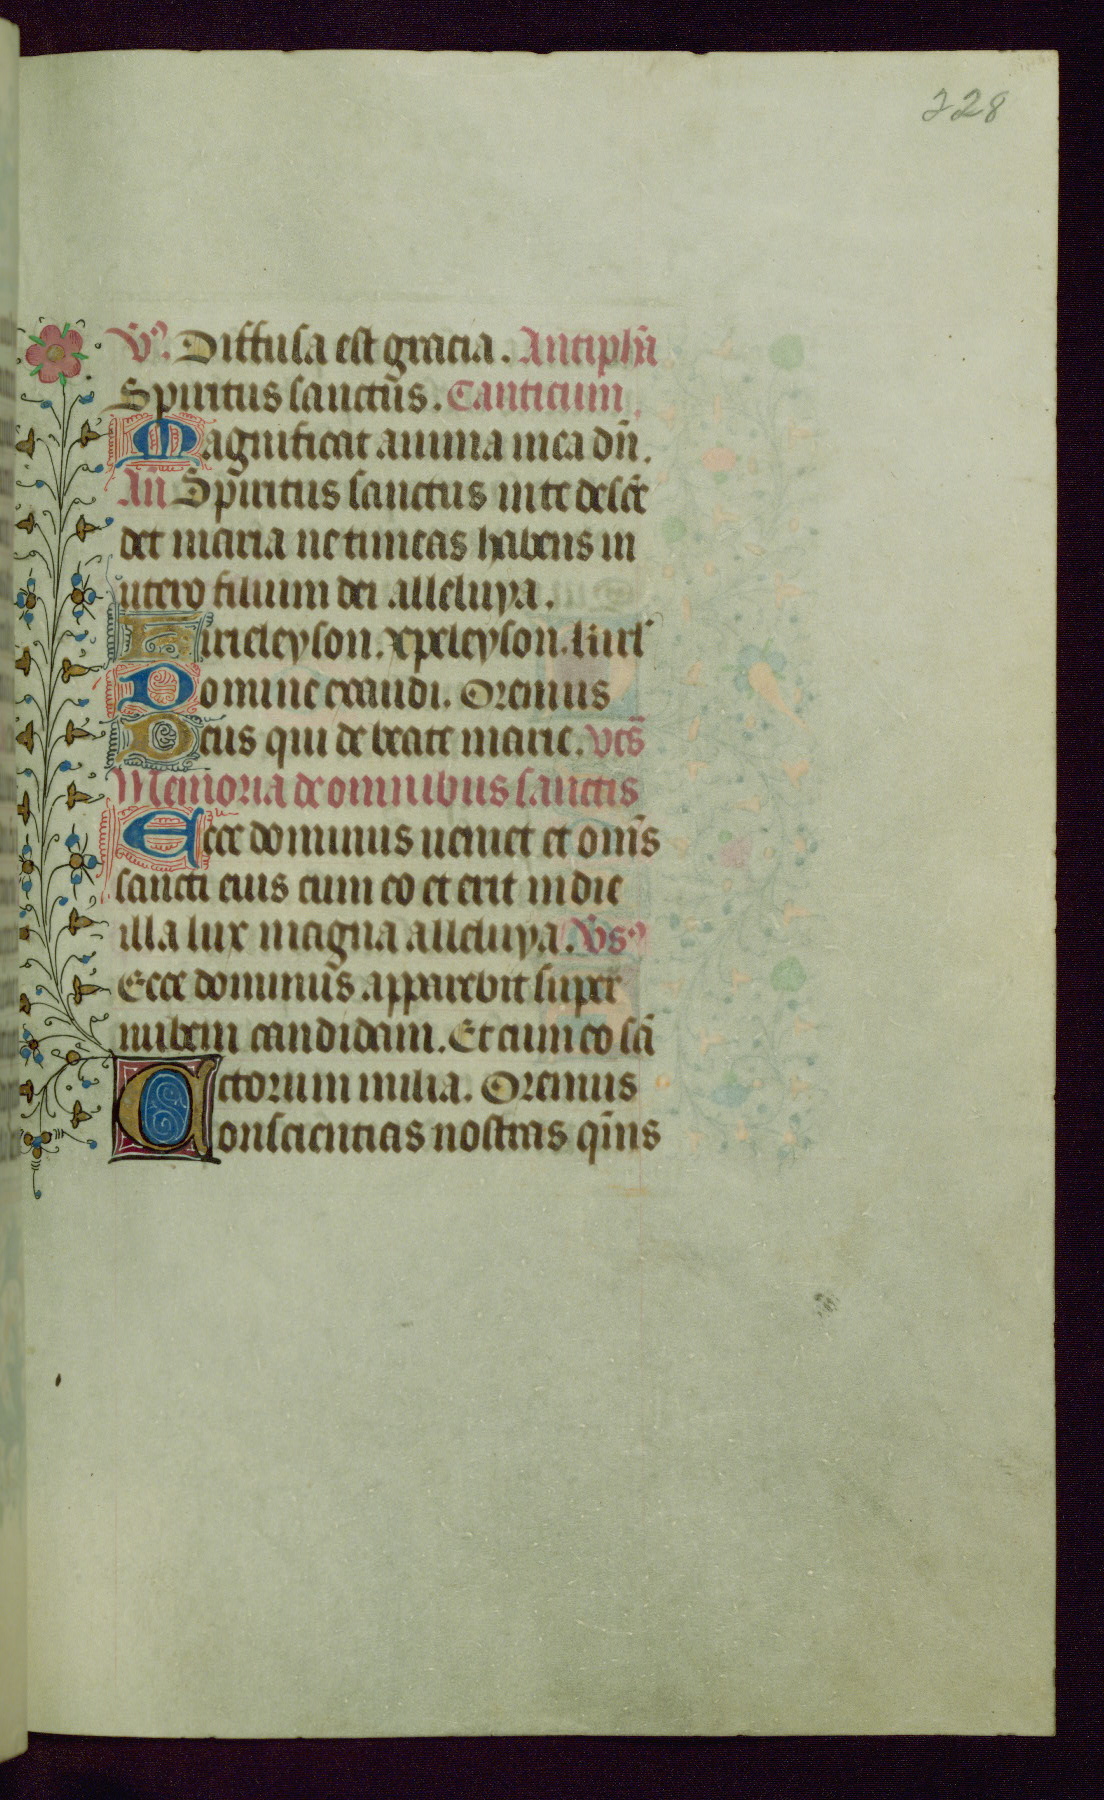 228
V̄s. Diffusa est gracia. Antiphā
Spiritus sanctus̄. Canticum.
Magnificat anima mea dn̄.
An̄ Spiritus sanctus in te descē
det maria ne timeas habens in
utero filium dei alleluya.
Kirieleyson. xpeleyson. kirl'
Domine exaudi. Oremus
Deus qui de beate marie. vēs
Memoria de omnibus sanctis
Ecce dominus ueniet et omn̄s
sancti eius cum eo et erit in die
illa lux magna alleluya. Vs
Ecce dominus̄ apparebit super
nubem candidam. Et cum eo sā
ctorum milia. Oremus
Consciencias nostras qm̄s